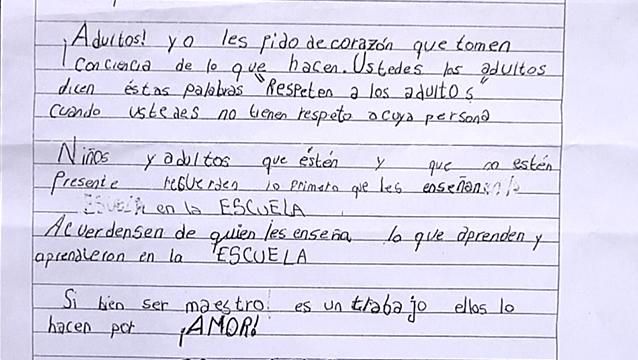 ¡Adultos! yo les pido de corazón que tomen
Conciencia de lo que hacen. Ustedes los adultos
dicen éstas palabras "Respeten a los adultos"
cuando ustedes no tienen respeto a cuya persona
Niños y adultos que éstén y que no estén
Presente recuerden lo primero que les enseñan
en la ESCUELA
Acuerdensen de quien les enseña lo que aprenden y
aprendieron en la ESCUELA
Si bien ser maestro! es un trabajo ellos lo
hacen por ¡AMOR!